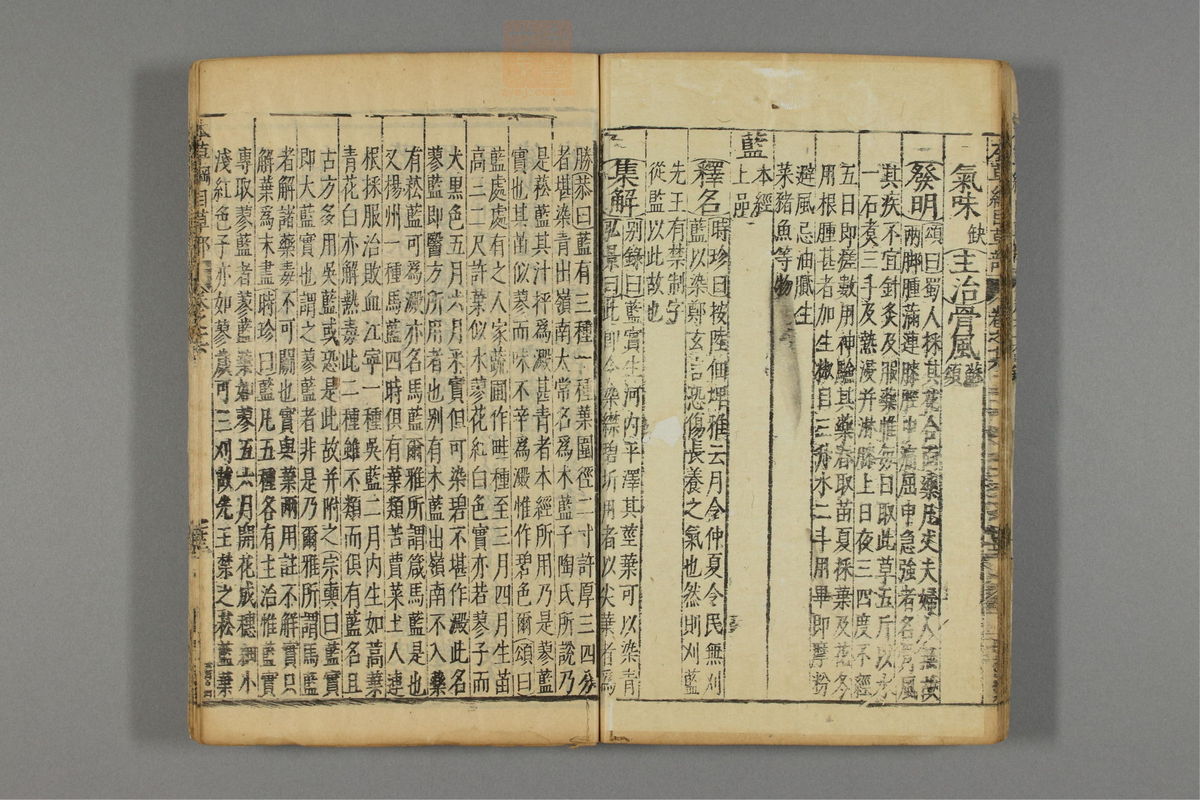 氣味缺主治骨風蘇頌
發明頌曰蜀人採其花合面藥凡丈夫婦人無故
兩脚腫滿連膝脛中痛屈申急強者名骨風
其疾不宜針灸及服藥惟每日取此草五斤以水
一石煑三斗及熱浸并淋膝上日夜三四度不經
五日即瘥數用神驗其藥春取苗夏採葉及花冬
用根腫甚者加生椒目三升水二斗用畢即摩粉
避風忌油膩生
菜豬魚等物
藍本經上品
釋名時珍曰按陸佃埤雅云月令仲夏令民無刈
藍以染鄭玄言恐傷長養之氣也然則刈藍
先王有禁制字
從監以此故也
集解别錄曰藍實生河内平澤其莖葉可以染青
弘景曰此即今染緤碧所用者以尖葉者爲
勝恭曰藍有三種一種葉圍徑二寸許厚三四分
者堪染青出嶺南太常名爲木藍子陶氏所說乃
是菘藍其汁抨爲澱甚青者本經所用乃是蓼藍
實也其苗似蓼而味不辛爲澱惟作碧色爾頌曰
藍處處有之人家蔬圃作畦種至三月四月生苗
高二三尺許葉似水蓼花紅白色實亦若蓼子而
大黑色五月六月采實但可染碧不堪作澱此名
蓼藍即醫方所用者也别有木藍出嶺南不入藥
有菘藍可爲澱亦名馬藍爾雅所謂葴馬藍是也
又楊州一種馬藍四時俱有葉類苦蕒菜土人連
根採服治敗血江寧一種吳藍二月内生如蒿葉
青花白亦解熱毒此二種雖不類而俱有藍名且
古方多用吳藍或恐是此故并附之宗奭曰藍實
即大藍實也謂之蓼藍者非是乃爾雅所謂馬藍
者解諸藥毒不可闕也實與葉兩用註不解實只
解葉爲未盡時珍曰藍凡五種各有主治惟藍實
專取蓼藍者蓼藍葉如蓼五六月開花成穗細小
淺紅色子亦如蓼歲可三刈故先王禁之菘藍葉